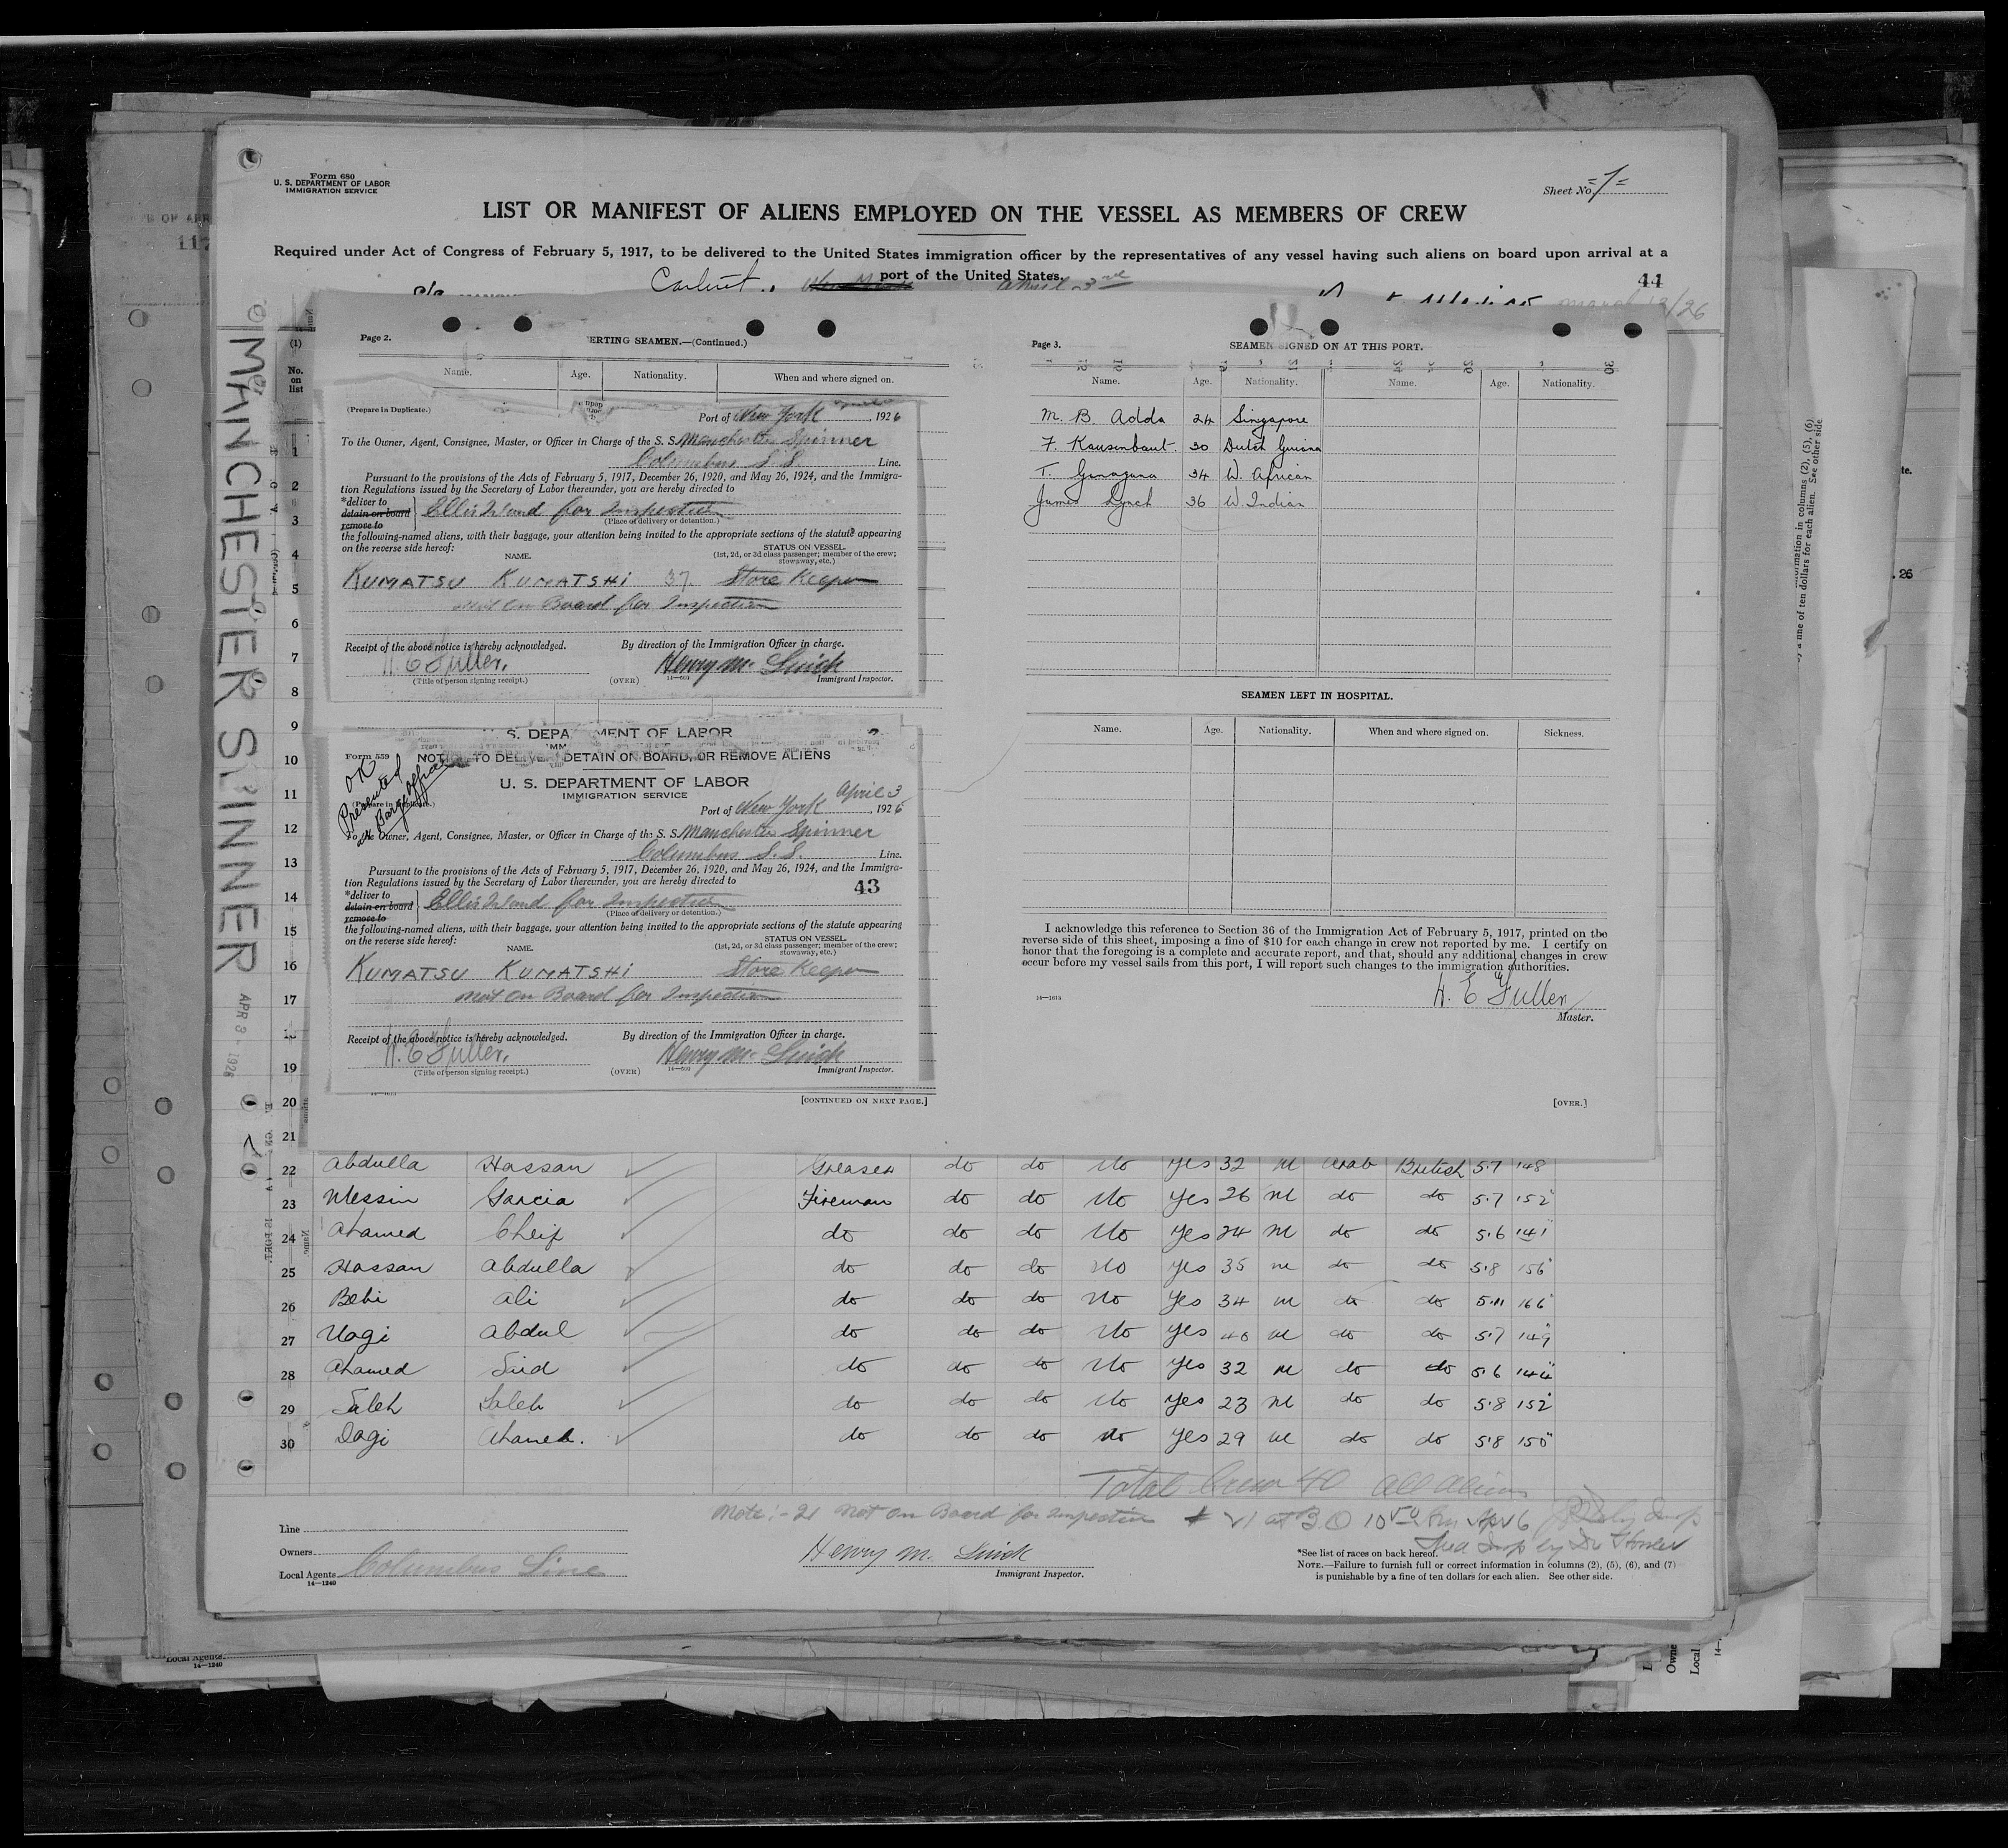 Form 680
U. S. DEPARTMENT OF LABOR
IMMIGRATION SERVICE
Sheet No. 1
LIST OR MANIFEST OF ALIENS EMPLOYED ON THE VESSEL AS MEMBERS OF CREW
Required under Act of Congress of February 5, 1917, to be delivered to the United States immigration officer by the representatives of any vessel having such aliens on board upon arrival at a
port of the United States.
44
April 3rd
MANCHESTER SPINNER
Page 2.
ERTING SEAMEN.—(Continued.)
Name. Age. Nationality. When and where signed on.
(Prepare in Duplicate.)
Port of New York, 1926
To the Owner, Agent, Consignee, Master, or Officer in Charge of the S. S. Manchester Spinner
Columbus S. S. Line.
Pursuant to the provisions of the Acts of February 5, 1917, December 26, 1920, and May 26, 1924, and the Immigra-
tion Regulations issued by the Secretary of Labor thereunder, you are hereby directed to
*deliver to
detain on board
remove to
Ellis Island for Inspection
(Place of delivery or detention.)
the following-named aliens, with their baggage, your attention being invited to the appropriate sections of the statute appearing
on the reverse side hereof:
NAME. STATUS ON VESSEL.
(1st, 2d, or 3d class passenger; member of the crew;
stowaway, etc.)
KUMATSU KUMATSHI 37 Store Keeper
Not On Board for Inspection
Receipt of the above notice is hereby acknowledged. By direction of the Immigration Officer in charge.
H. E Fuller.
(Title of person signing receipt.) (OVER) 14—603 Immigrant Inspector.
S. DEPA MENT OF LABOR
Form 559
NOTI TO DELIVER, DETAIN ON BOARD, OR REMOVE ALIENS
U. S. DEPARTMENT OF LABOR
IMMIGRATION SERVICE
OK
Presented
at Barge office
April 3
Port of New York, 1926
Owner, Agent, Consignee, Master, or Officer in Charge of the S. S. Manchester Spinner
Columbus S. S. Line.
Pursuant to the provisions of the Acts of February 5, 1917, December 26, 1920, and May 26, 1924, and the Immigra-
tion Regulations issued by the Secretary of Labor thereunder, you are hereby directed to
43
*deliver to
detain on board
remove to
Ellis Island for Inspection
(Place of delivery or detention.)
the following-named aliens, with their baggage, your attention being invited to the appropriate sections of the statute appearing
on the reverse side hereof:
NAME. STATUS ON VESSEL.
(1st, 2d, or 3d class passenger; member of the crew;
stowaway, etc.)
KUMATSU KUMATSHI Store Keeper
Not On Board for Inspection
Receipt of the above notice is hereby acknowledged. By direction of the Immigration Officer in charge.
H. E Fuller.
(Title of person signing receipt.) (OVER) 14—603 Immigrant Inspector.
[CONTINUED ON NEXT PAGE.]
Page 3.
SEAMEN SIGNED ON AT THIS PORT.
Name. Age. Nationality. Name. Age. Nationality.
M. B. Adda 24 Singapore
F. Kausenbaut. 30 Dutch Guiana
T. 34 W. African
James Lynch 36 W. Indian
SEAMEN LEFT IN HOSPITAL.
Name. Age. Nationality. When and where signed on. Sickness.
I acknowledge this reference to Section 36 of the Immigration Act of February 5, 1917, printed on the
reverse side of this sheet, imposing a fine of $10 for each change in crew not reported by me. I certify on
honor that the foregoing is a complete and accurate report, and that, should any additional changes in crew
occur before my vessel sails from this port, I will report such changes to the immigration authorities.
H. E Fuller
Master.
[OVER.]
(1)
No.
on
list
1
2
3
4
5
6
7
8
9
10
11
12
13
14
15
16
17
19
20
21
22 Abdulla Hassan Greaser do do No Yes 32 M Arab British 5.7 148
23 Messin Garcia Fireman do do No Yes 26 M do do 5.7 152
24 Ahamed Cheif do do do No Yes 24 M do do 5.6 141
25 Hassan Abdulla do do do No Yes 35 M do do 5.8 156
26 Bebi Ali do do do No Yes 34 M do do 5.11 166
27 Nagi Abdul do do do No Yes 40 M do do 5.7 149
28 Ahamed Said do do do No Yes 32 M do do 5.6 144
29 Saleh Saleh do do do No Yes 23 M do do 5.8 152
30 Dagi Ahamed. do do do No Yes 29 M do do 5.8 150
Total Crew 40 All Aliens
Note:- 21 Not On Board for Inspection
Line
Owners
Local Agents Columbus Line
14—1240
Immigrant Inspector.
*See list of races on back hereof.
NOTE.—Failure to furnish full or correct information in columns (2), (5), (6), and (7)
is punishable by a fine of ten dollars for each alien. See other side.